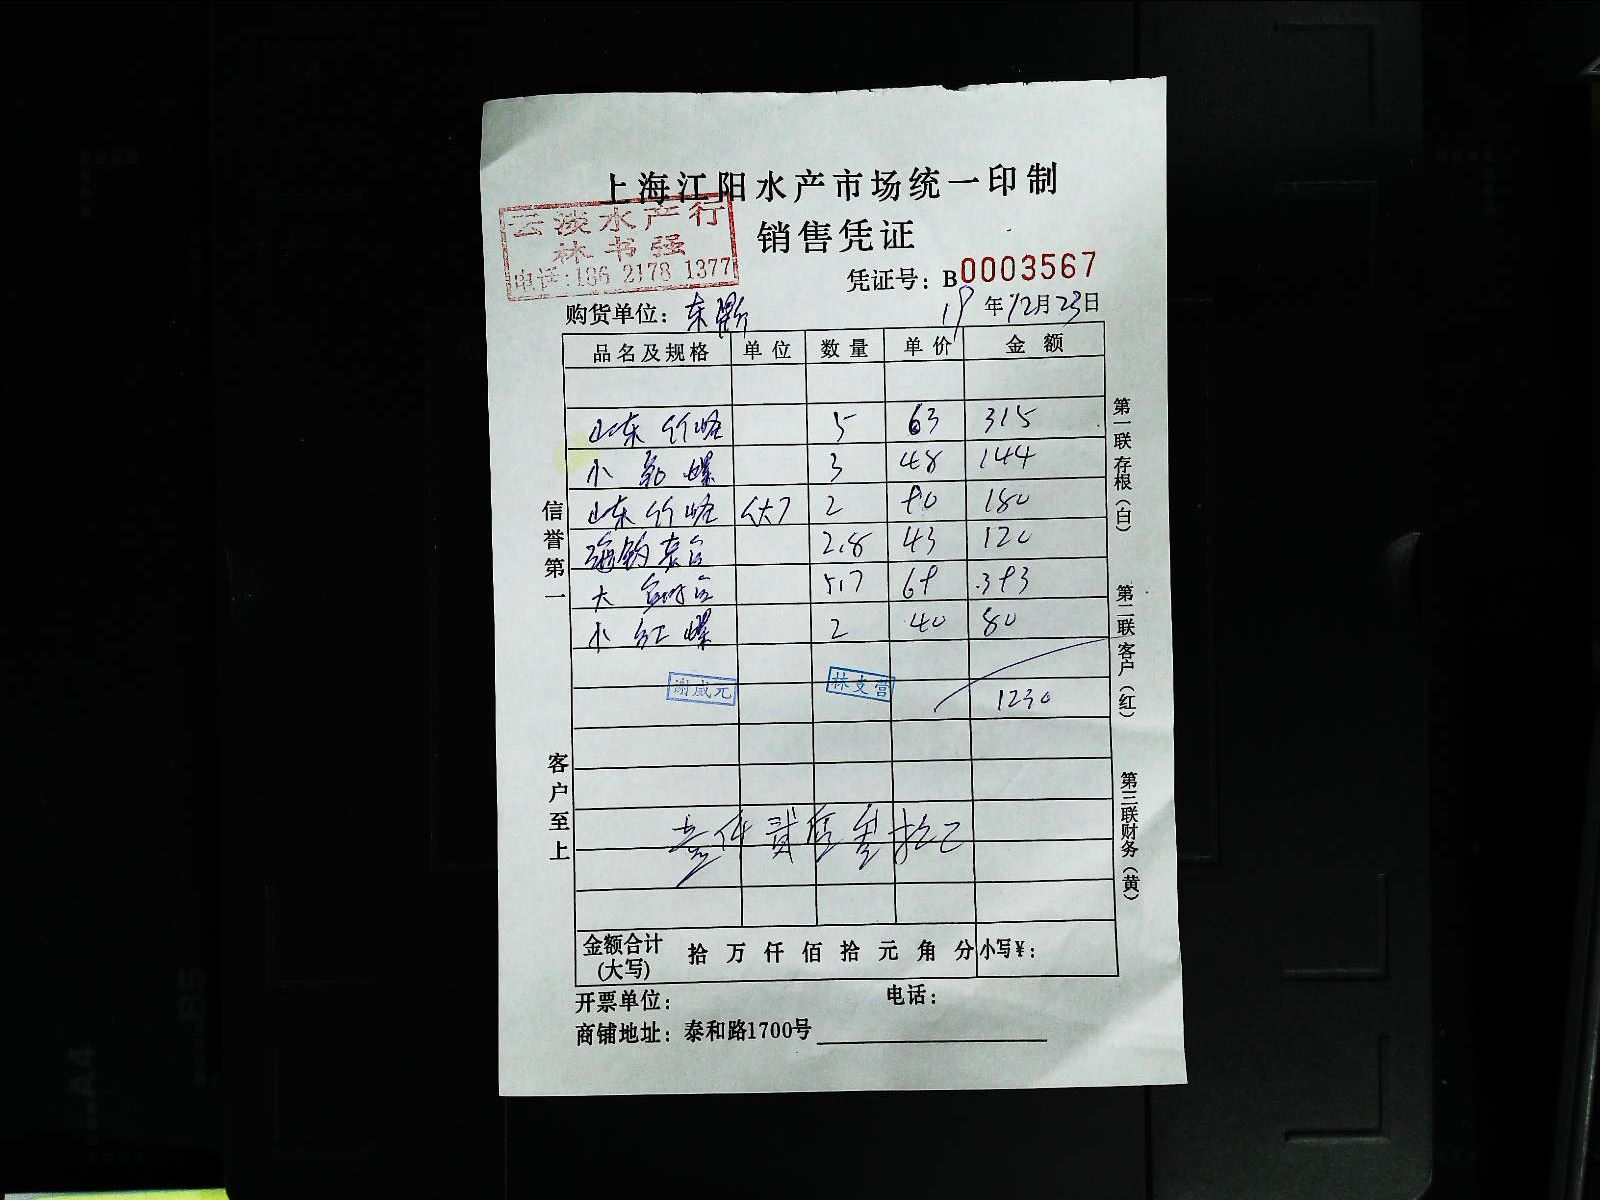 上海江阳水产市场统一印制
云淡水产行
林书强
电话:186 2178 1377
销售凭证
凭证号: B0003567
购货单位: 东
19 年 12 月 23 日
品名及规格 单位 数量 单价 金额
山东竹蛏 5 63 315
小 螺 3 48 144
山东竹蛏 2 90 180
2.8 43 120
大 5.7 69 393
小红螺 2 40 80
谢成元 林支营
1230
壹仟贰佰叁拾元
金额合计(大写) 拾 万 仟 佰 拾 元 角 分 小写¥:
开票单位: 电话:
商铺地址: 泰和路1700号
信誉第一
客户至上
第一联 存根(白)
第二联 客户(红)
第三联 财务(黄)
A4
B5